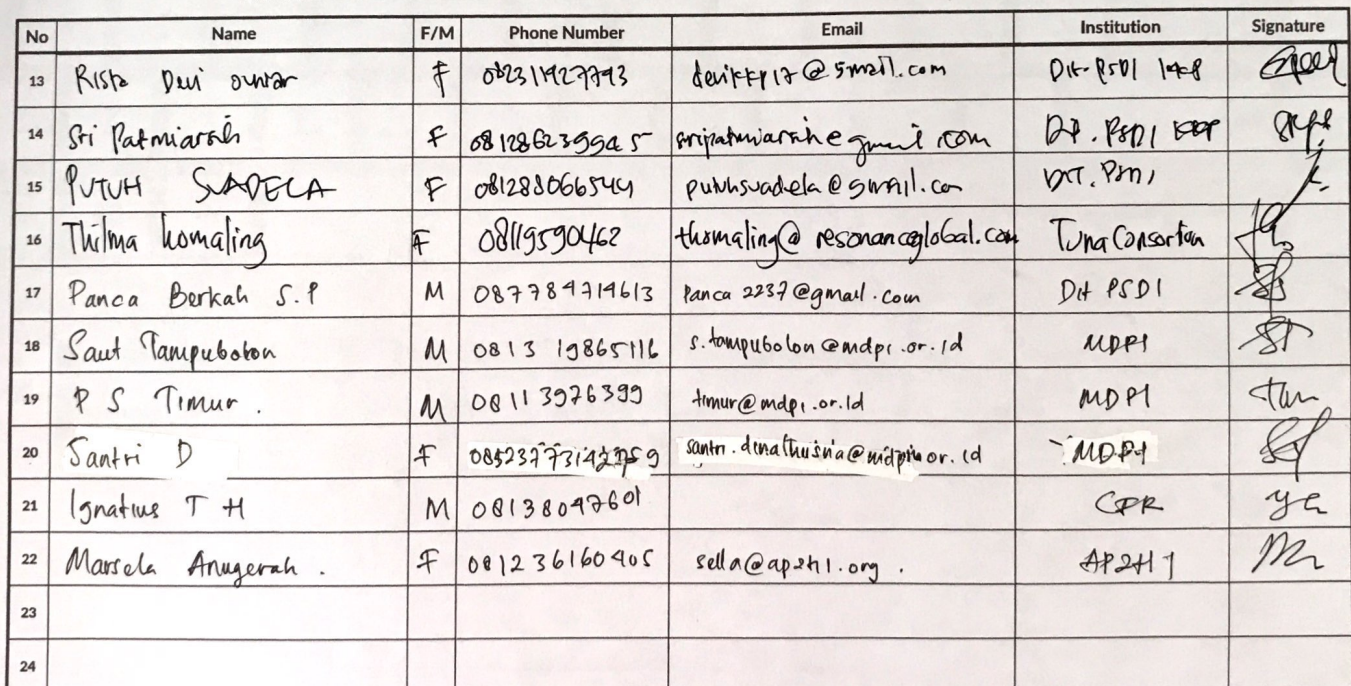 No Name F/M Phone Number Email Institution Signature
13 Rista Devi F 082311927793 devikkp17@gmail.com Dit-PSDI
14 Sri Patmiarsih F sripatmiarsih@gmail.com PSDI
15 PUTUH SUADELA F 081288066544 putuhsuadela@gmail.com DIT. PSDI
16 Thilma Komaling F 08119590462 tkomaling@resonanceglobal.com Tuna Consortium
17 Panca Berkah S.P M 087784714613 Panca2237@gmail.com Dit PSDI
18 Saut Tampubolon M 081319865116 s.tampubolon@mdpi.or.id MDPI
19 P S Timur. M 08113976399 timur@mdpi.or.id MDPI
20 Santri D F MDPI
21 Ignatius T H M 08138047601
22 Marsela Anugerah. F 081236160405 sella@ap2hi.org. AP2HI
23
24